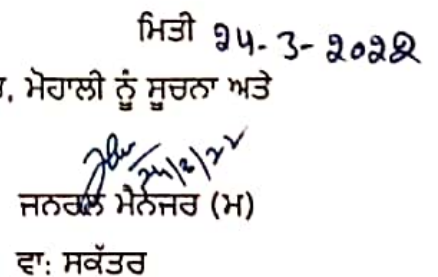 ਮਿਤੀ 24-3-2022
ਮੋਹਾਲੀ ਨੂੰ ਸੂਚਨਾ ਅਤੇ
24/3/22
ਜਨਰਲ ਮੈਨੇਜਰ (ਮ)
ਵਾ: ਸਕੱਤਰ